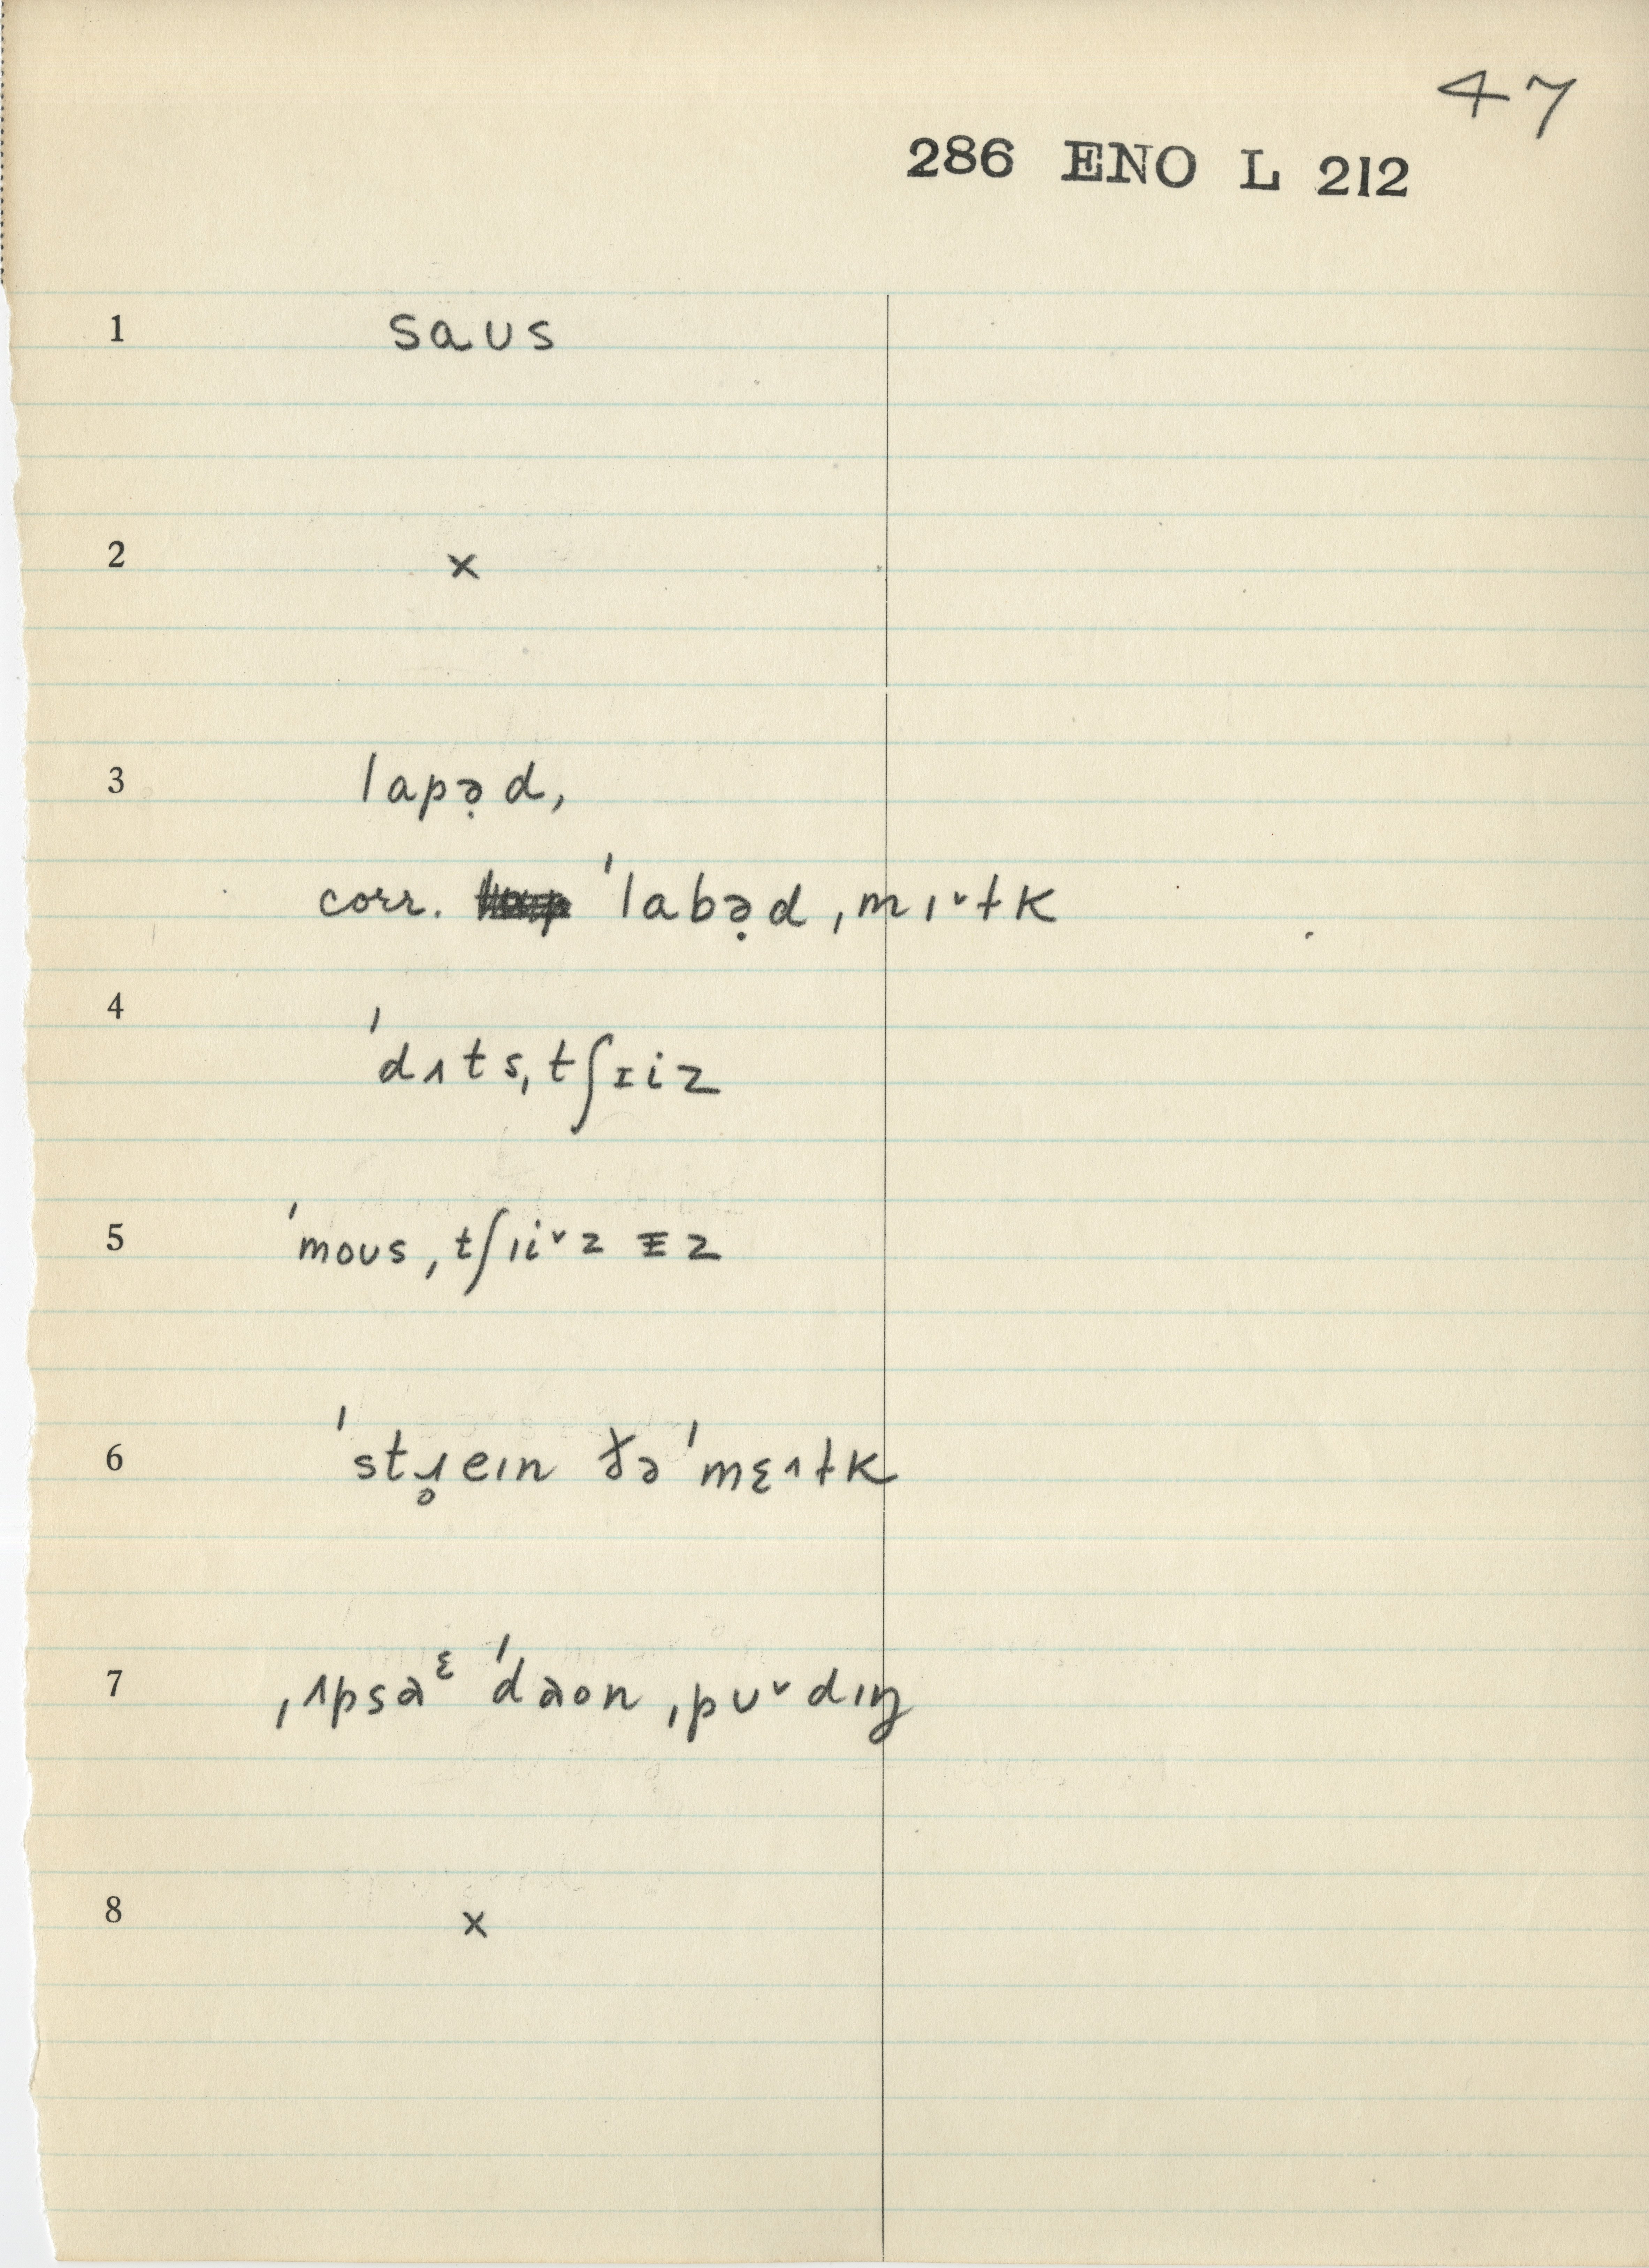 47
286 ENO L 212
1 saʊs
2 ×
3 lapə̣d,
corr. ˈlabə̣d ˌmɪ˅ɫk
4 ˈdʌtsˌtʃɪiz
5 ˈmoʊsˌtʃɪi˅zɪz
6 ˈstɹ̥eɪn ðəˈmɛɪɫk
7 ˌʌpsaᵋ ˈdaon ˌpʊ˅dɪŋ
8 ×